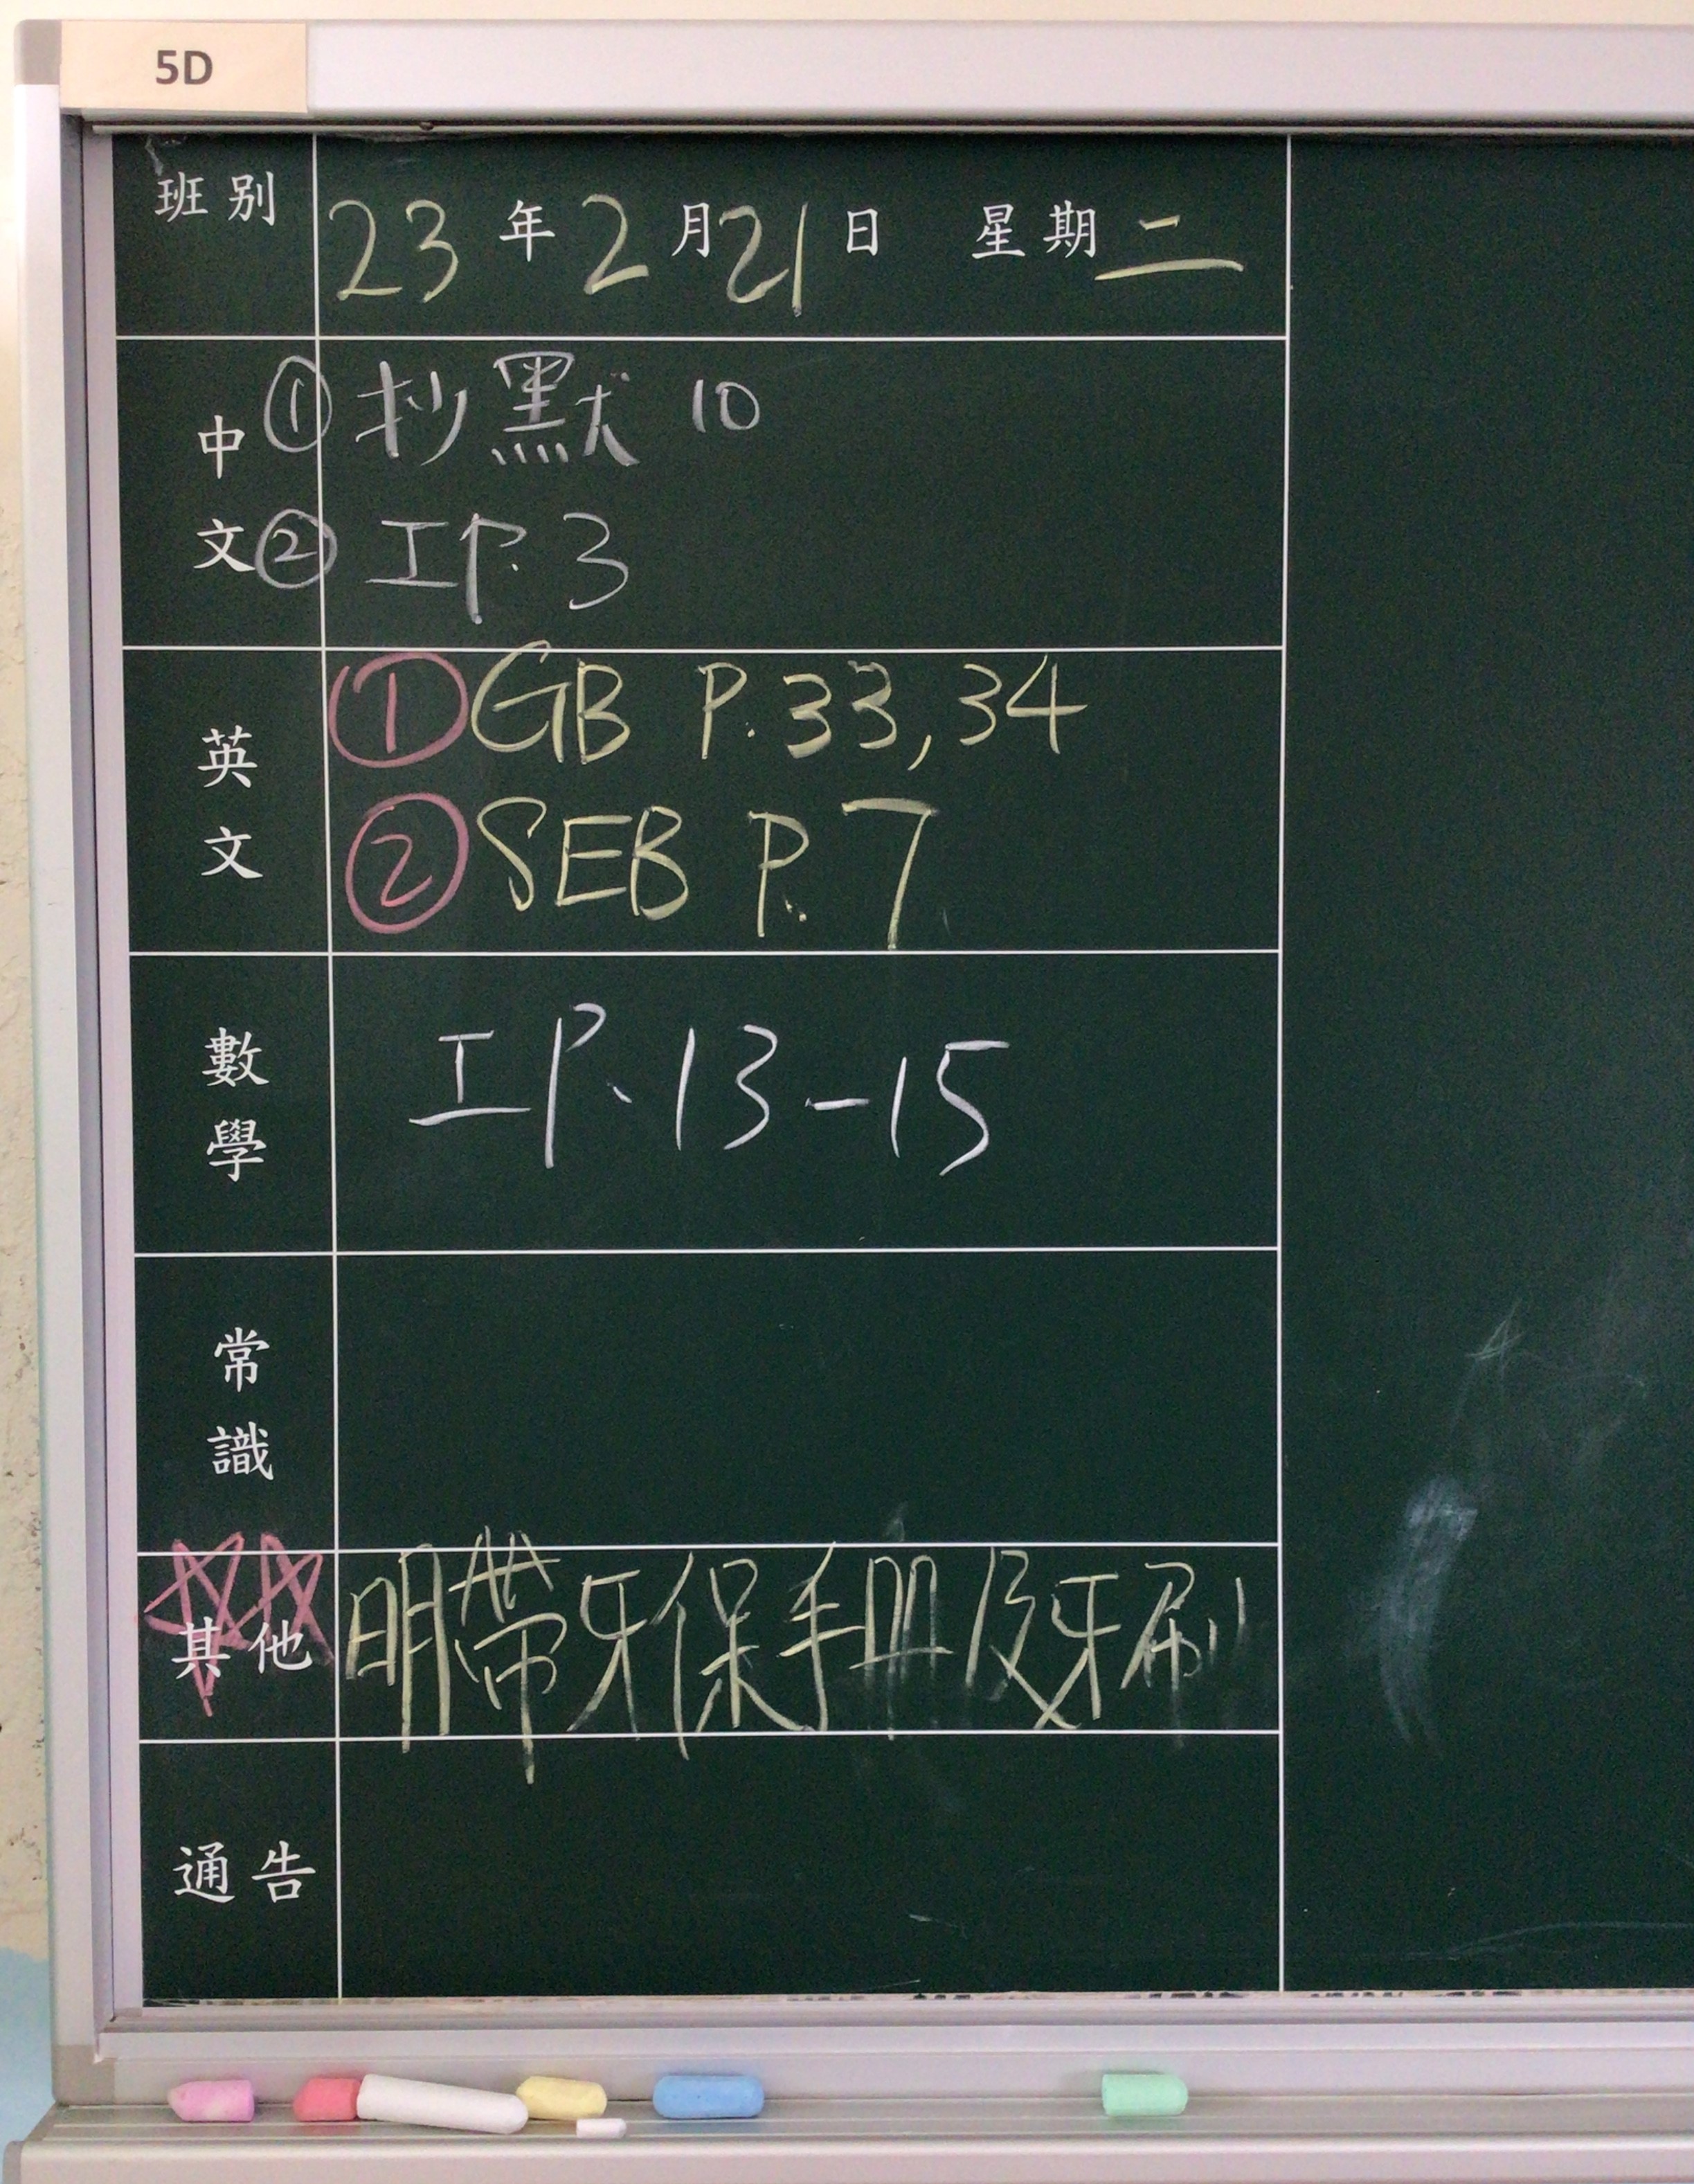 5D
班別 23年2月21日 星期二
中文 ① 抄默 10
② 工P.3
英文 ① GB P.33,34
② SEB P.7
數學 工P.13-15
常識
其他 明帶牙保手冊及牙刷
通告